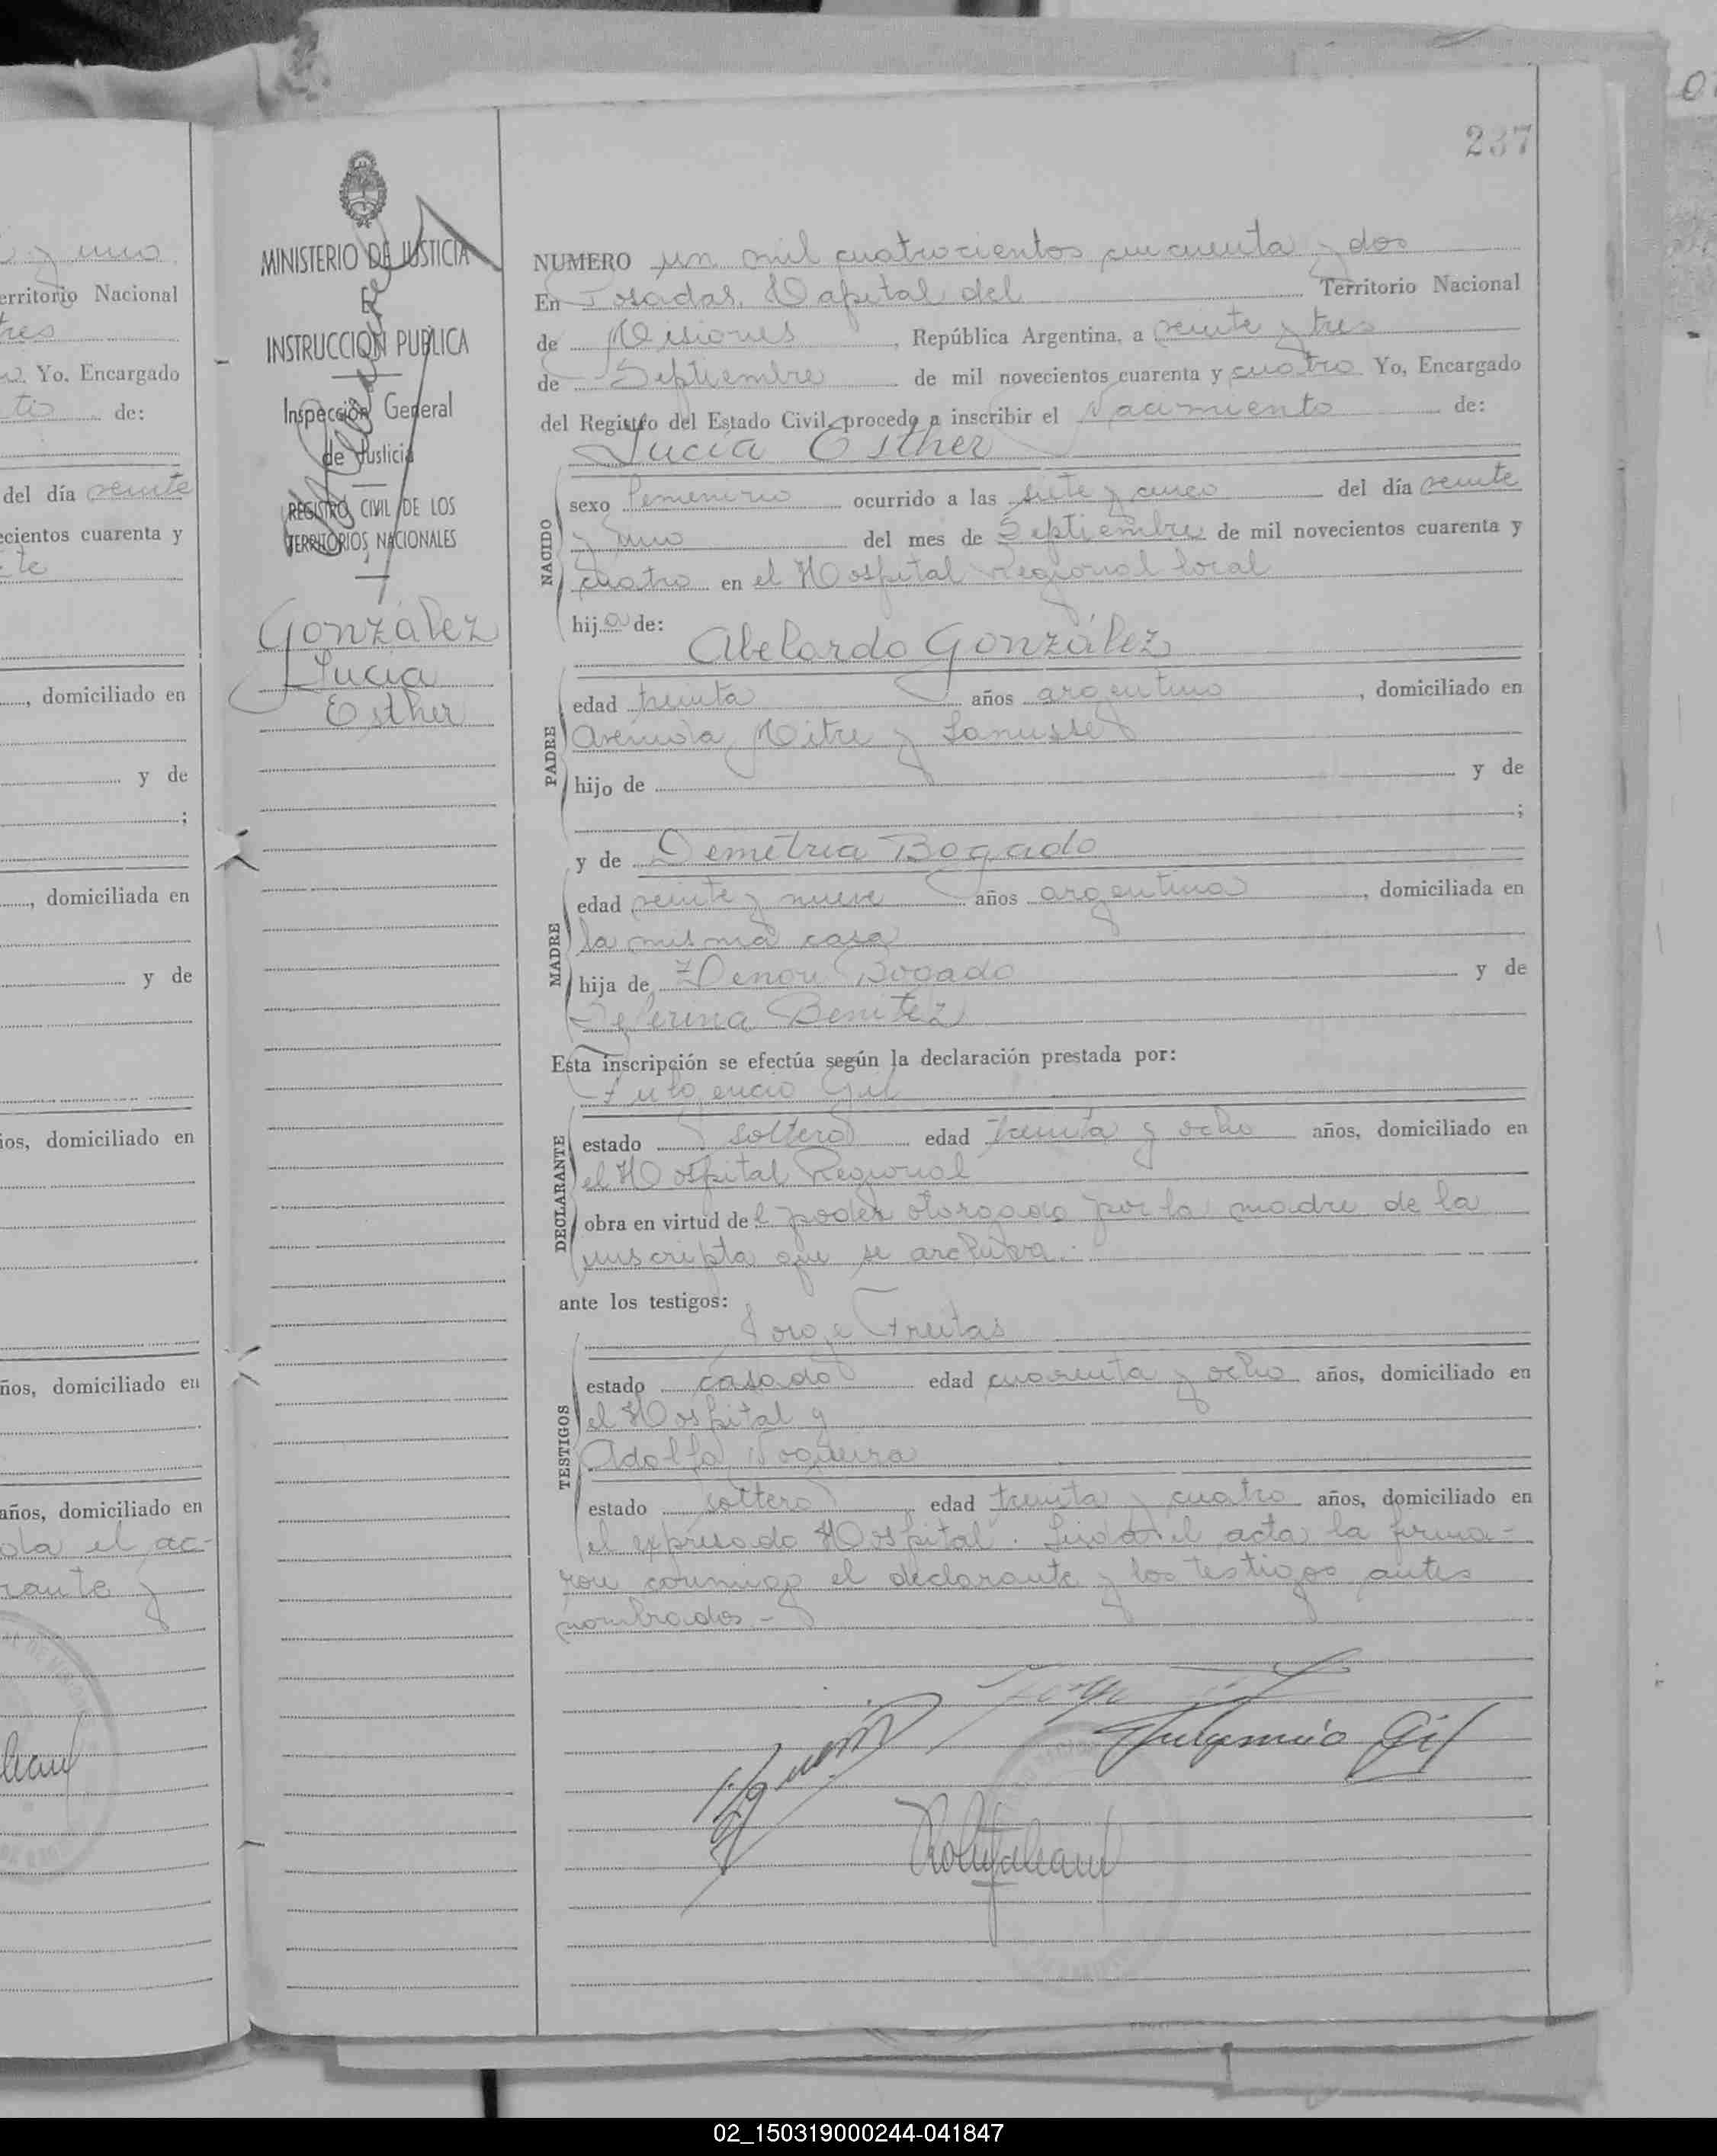 237
y uno
erritorio Nacional
tres
Yo, Encargado
de:
del día veinte
ecientos cuarenta y
, domiciliado en
y de
;
, domiciliada en
y de
ios, domiciliado en
ños, domiciliado en
años, domiciliado en
el ac-
rante y
MINISTERIO DE JUSTICIA
E
INSTRUCCION PUBLICA
Inspección General
de Justicia
REGISTRO CIVIL DE LOS
TERRITORIOS NACIONALES
González
Lucía
Esther
NUMERO un mil cuatrocientos cincuenta y dos
En Posadas, Capital del Territorio Nacional
de Misiones, República Argentina, a veinte y tres
de Septiembre de mil novecientos cuarenta y cuatro Yo, Encargado
del Registro del Estado Civil, procedo a inscribir el Nacimiento de:
Lucía Esther
NACIDO
sexo femenino ocurrido a las siete y cinco del día veinte
y uno del mes de Septiembre de mil novecientos cuarenta y
cuatro en el Hospital Regional local
hija de:
Abelardo González
PADRE
edad treinta años argentino, domiciliado en
Avenida Mitre y Lanusse
hijo de y de
;
y de Demetria Bogado
MADRE
edad veinte y nueve años argentina, domiciliada en
la misma casa
hija de Bogado y de
Benitez
Esta inscripción se efectúa según la declaración prestada por:
Fulgencio Gil
DECLARANTE
estado soltero edad treinta y ocho años, domiciliado en
el Hospital Regional
obra en virtud del poder otorgado por la madre de la
inscripta que se archiva.
ante los testigos:
Jorge Freitas
TESTIGOS
estado casado edad cuarenta y ocho años, domiciliado en
el Hospital y
Adolfo Nogueira
estado soltero edad treinta y cuatro años, domiciliado en
el expresado Hospital. Leida el acta la firma-
ron conmigo el declarante y los testigos antes
nombrados -
Jorge
Fulgencio Gil
02_150319000244-041847